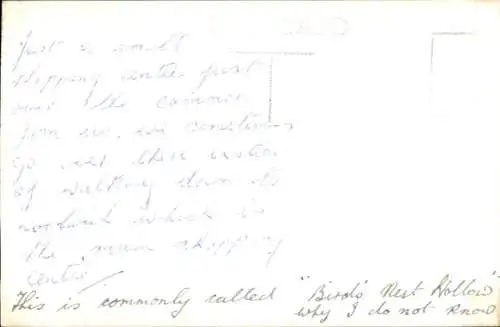 Just a small
shopping centre just
over the common
from us, we sometimes
go over there instead
of walking down to
which is
the main shopping
centre
This is commonly called "Bird's Nest Hollow"
why I do not know